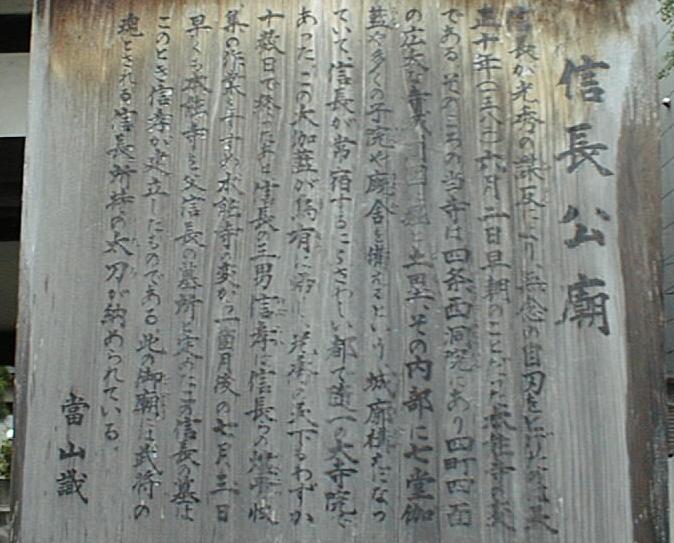 信長公廟
信長が光秀の謀反により無念の自刃をとげたのは天
正十年（一五八二）六月二日早朝のことだった 本能寺の変
である そのころの当寺は四条西洞院にあり四町四面
の広大な寺域 周囲に 土塁 その内部に七堂伽
藍や多くの子院や厩舎を備えるという 城廓構えになっ
ていて 信長が常宿するにふさわしい都で随一の大寺院で
あった この大伽藍が烏有に帰し 光秀の天下もわずか
十数日で終った 信長の三男 信孝は信長の
の作業をすすめ 本能寺の変から一箇月後の七月三日
早くも本能寺を父信長の墓所と定めた この信長の墓は
このとき信孝が建立したものである 此の御廟には武将の
魂とされる信長所持の太刀が納められている。
當山識